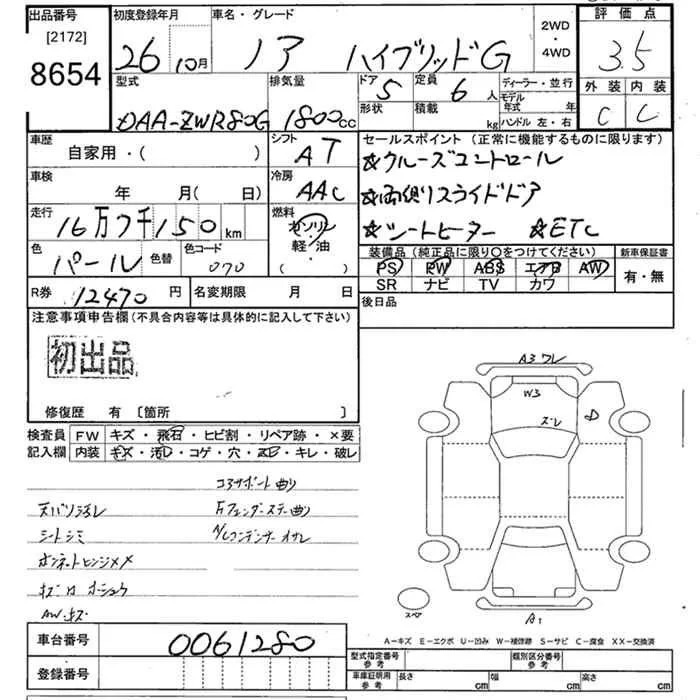 出品番号
[2172]
8654
初度登録年月
26 10月
車名・グレード
ノア ハイブリッドG
2WD
・
4WD
評価点
3.5
外装 内装
C C
型式
DAA-ZWR80G
排気量
1800cc
ドア
5
形状
定員
6人
積載
kg
ディーラー・並行
モデル年式 年
ハンドル 左・右
車歴
自家用・( )
シフト
AT
車検
年 月( 日)
冷房
AAC
走行
16万7千150km
燃料
ガソリン
軽油・
( )
色
パール
色替
色コード
070
R券
12470円
名変期限 月 日
セールスポイント (正常に機能するものに限ります)
☆クルーズコントロール
☆両側リスライドドア
☆シートヒーター ☆ETC
装備品(純正品に限り○をつけてください)
PS PW ABS エアB AW
SR ナビ TV カワ
新車保証書
有・無
後日品
注意事項申告欄(不具合内容等は具体的に記入して下さい)
初出品
修復歴 有 [箇所 ]
検査員
記入欄
FW キズ・飛石・ヒビ割・リペア跡・×要
内装 キズ・汚レ・コゲ・穴・スレ・キレ・破レ
コアサポート曲り
天バリ汚レ
Fフェンダーステー曲り
シートシミ
A/Cコンデンサーオサレ
ボンネットヒンジメメ
AWキズ
A3ワレ
W3
ズレ
D
スペア
A1
A-キズ E-エクボ U-凹み W-補修跡 S-サビ C-腐食 XX-交換済
車台番号
0061280
登録番号
型式指定番号
参考
類別区分番号
参考
車庫証明用
参考
長さ cm
幅 cm
高さ cm